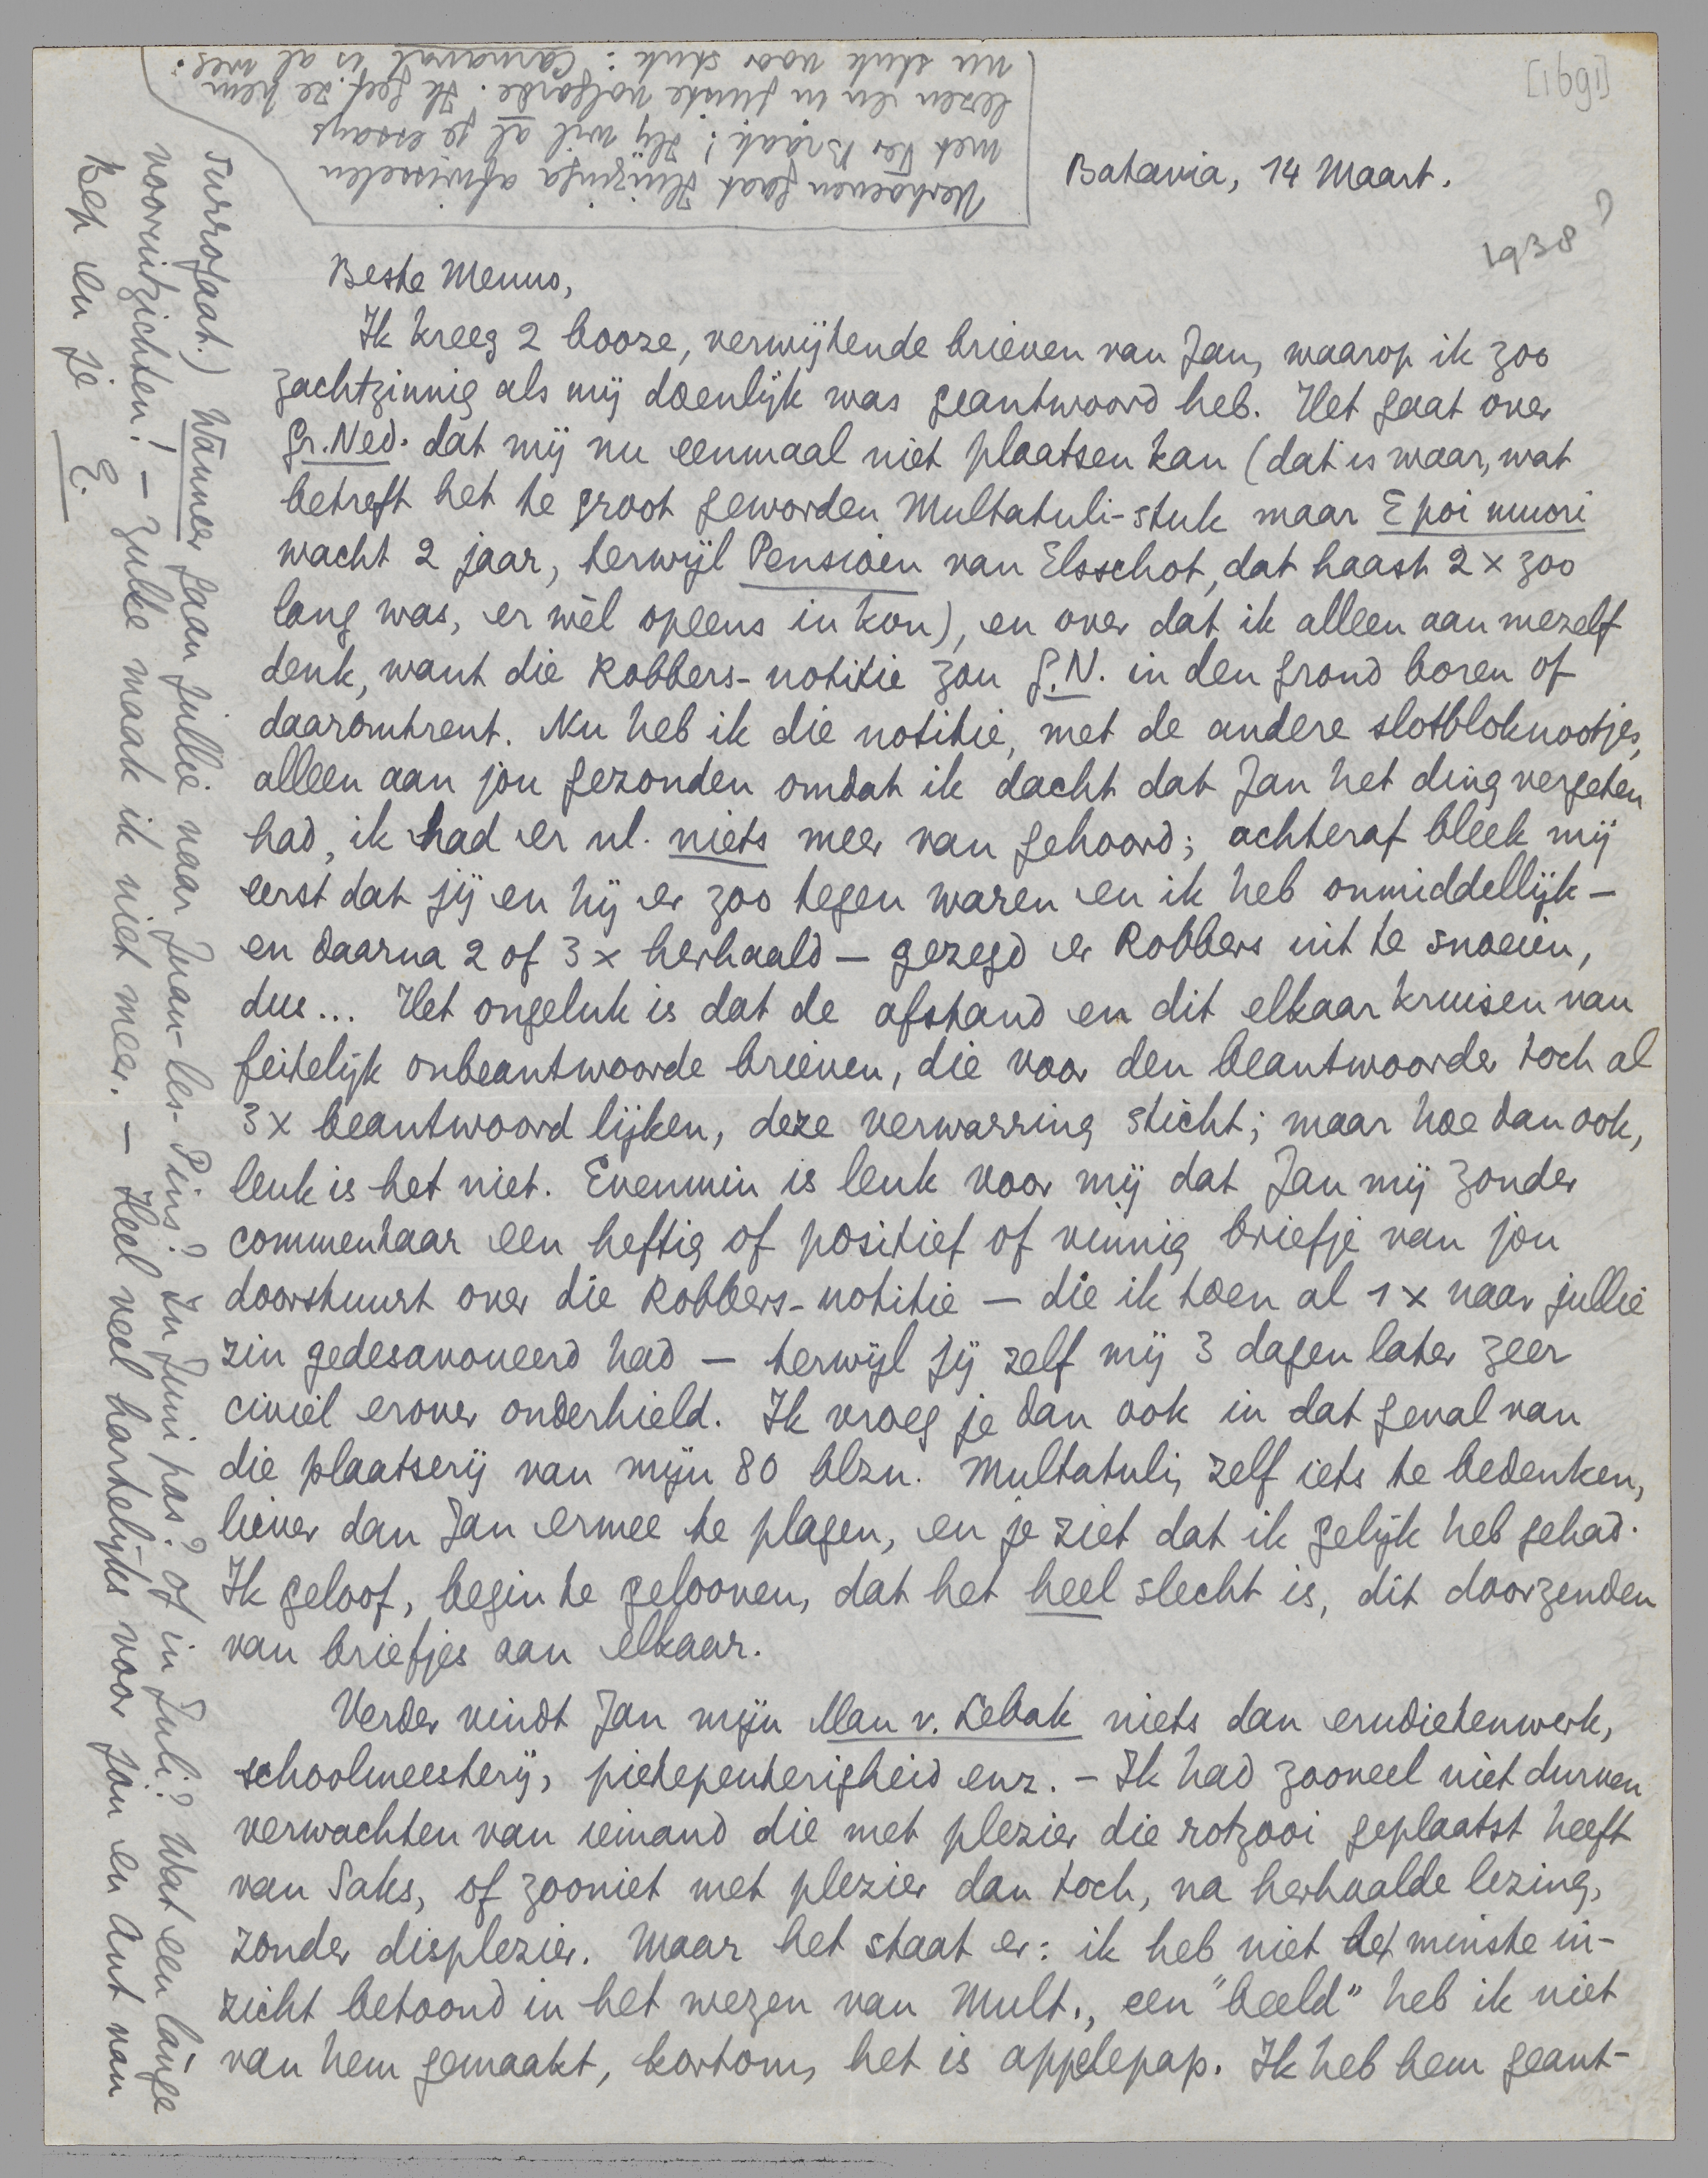 [1691]
Batavia, 14 Maart.
1938?
Beste Menno,
Ik kreeg 2 booze, verwijtende brieven van Jan, waarop ik zoo
zachtzinnig als mij doenlijk was geantwoord heb. Het gaat over
Gr. Ned. dat mij nu eenmaal niet plaatsen kan (dat is waar, wat
betreft het te groot geworden Multatuli-stuk maar E poi muori
wacht 2 jaar, terwijl Pensioen van Elsschot, dat haast 2 x zoo
lang was, er wèl opeens in kon), en over dat ik alleen aan mezelf
denk, want die Robbers-notitie zou G.N. in den grond boren of
daaromtrent. Nu heb ik die notitie, met de andere slotbloknootjes,
alleen aan jou gezonden omdat ik dacht dat Jan het ding vergeten
had, ik had er nl. niets meer van gehoord; achteraf bleek mij
eerst dat jij en hij er zoo tegen waren en ik heb onmiddellijk –
en daarna 2 of 3 x herhaald – gezegd er Robbers uit te snoeien,
dus... Het ongeluk is dat de afstand en dit elkaar kruisen van
feitelijk onbeantwoorde brieven, die voor den beantwoorder toch al
3 x beantwoord lijken, deze verwarring sticht; maar hoe dan ook,
leuk is het niet. Evenmin is leuk voor mij dat Jan mij zonder
commentaar een heftig of positief of vinnig briefje van jou
doorstuurt over die Robbers-notitie – die ik toen al 1 x naar jullie
zin gedesavoueerd had – terwijl jij zelf mij 3 dagen later zeer
civiel erover onderhield. Ik vroeg je dan ook in dat geval van
die plaatserij van mijn 80 blzn. Multatuli, zelf iets te bedenken,
liever dan Jan ermee te plagen, en je ziet dat ik gelijk heb gehad.
Ik geloof, begin te gelooven, dat het heel slecht is, dit doorzenden
van briefjes aan elkaar.
Verder vindt Jan mijn Man v. Lebak niets dan erudietenwerk,
schoolmeesterij, pietepeuterigheid enz. – Ik had zooveel niet durven
verwachten van iemand die met plezier die rotzooi geplaatst heeft
van Saks, of zooniet met plezier dan toch, na herhaalde lezing,
zonder displezier. Maar het staat er: ik heb niet het minste in-
zicht betoond in het wezen van Mult., een "beeld" heb ik niet
van hem gemaakt, kortom, het is appelepap. Ik heb hem geant-
surrogaat.) Wanneer gaan jullie naar Juan-les-Pins? In Juni pas? of in Juli? Wat een lange
vooruitzichten! – Zulke maak ik niet meer. – Heel veel hartelijks voor jou en Ant van
Bep en je E.
Verhoeven gaat Huizinga afwisselen
met Ter Braak! Hij wil al je essays
lezen en in juiste volgorde. Ik geef ze hem
nu stuk voor stuk: Carnaval is al weg.